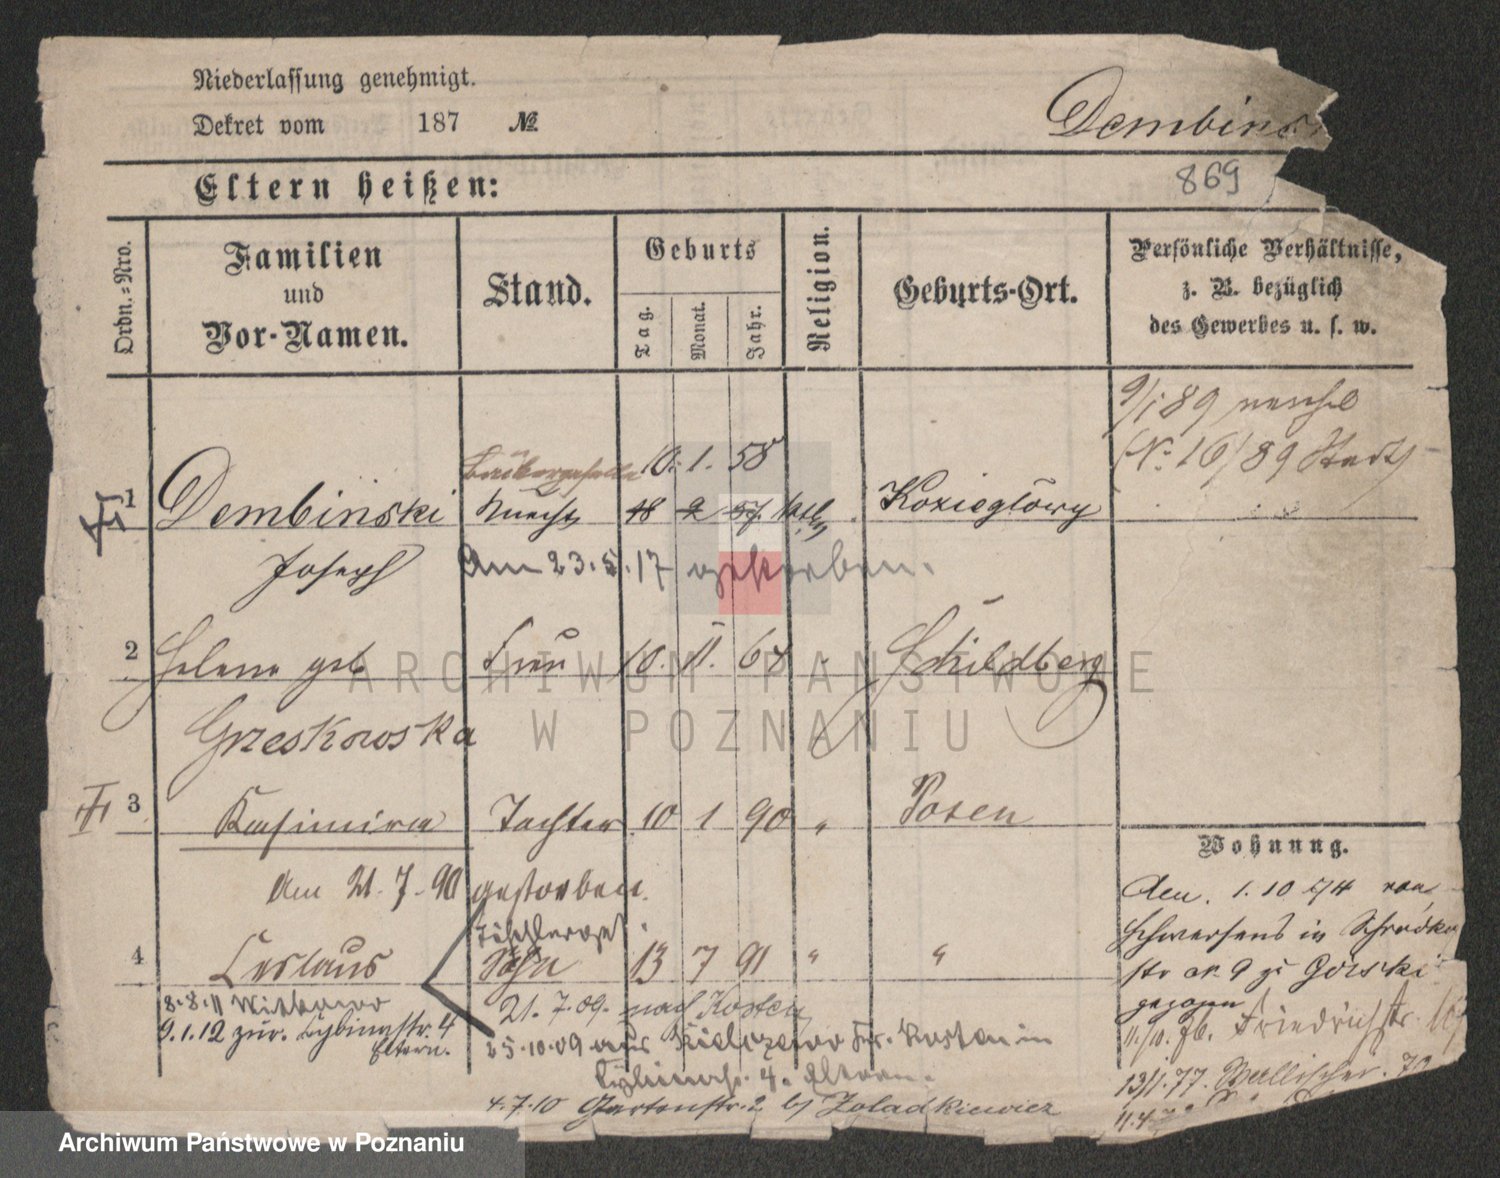 Niederlassung genehmigt.
Dekret vom 187 №
Dembins
869
Eltern heißen:
Ordn.-Nro.
Familien
und
Vor-Namen.
Stand.
Geburts
Tag.
Monat.
Jahr.
Religion.
Geburts-Ort.
Persönliche Verhältnisse,
z. B. bezüglich
des Gewerbes u. s. w.
9/1 89
(№ 16/89 Stadt)
10. 1. 58
1 Dembinski Knecht 18 2 57 kath Kozieglowy
Joseph
Am 23.5.17 gestorben.
2 Helene geb Frau 10. 11. 67 " Schildberg
Grzeskowska
3 Kasimira Tochter 10 1 90 " Posen
Am 21.7.90 gestorben.
Wohnung.
Den. 1.10 74 von
Schwersenz in Schrodka
str nr. 9 zu Gorski
gezogen
4 Ceslaus Sohn 13 7 91 " "
8.8.11
9.1.12 zur. Cybinastr. 4
Eltern.
21.7.09. nach Kosten
25.10.09 aus Kr. Kosten in
Cybinastr. 4. Eltern.
4.7.10 Gartenstr. 2 bj Zoladkiewicz
11./10. 76. Friedrichstr.
13/1.77. Wallischei. 70
ARCHIWUM PAŃSTWOWE
W POZNANIU
Archiwum Państwowe w Poznaniu